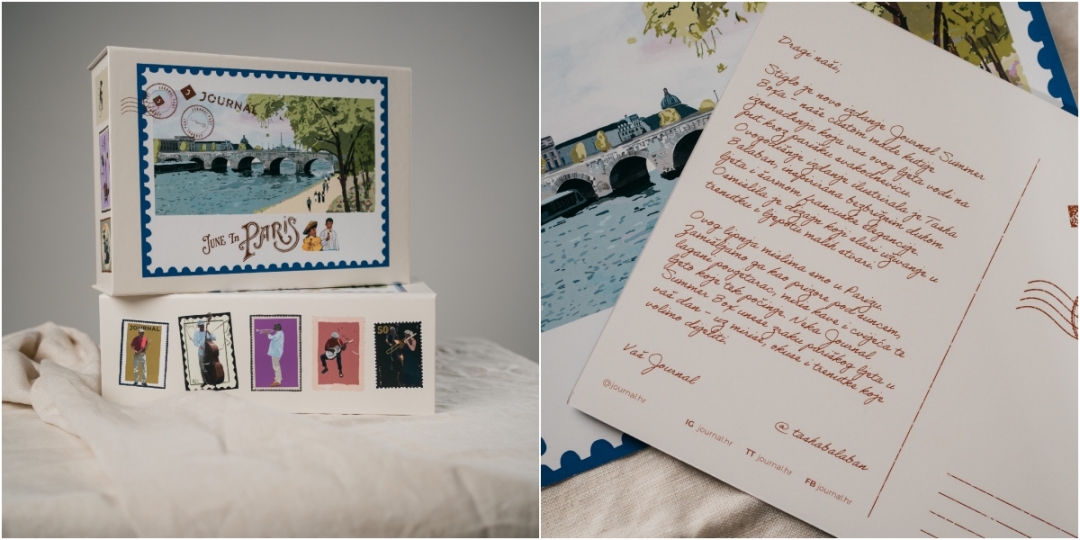 JOURNAL
JUNE IN PARIS
JOURNAL
50
Dragi naši,
Stiglo je novo izdanje Journal Summer
Boxa - naše male kutije
iznenađenja koja vas ovog ljeta vodi na
put kroz parišku svakodnevicu.
Ovogodišnje izdanje ilustrirala je Tasha
Balaban, inspirirana bezbrižnim duhom
ljeta i šarmom francuske elegancije.
Osmislila je dizajn koji slavi uživanje u
trenutku i ljepotu malih stvari.
Ovog lipnja mislima smo u Parizu
Zamišljamo ga kao prizor pod suncem,
lagani povjetarac, mala kava i cvijeće te
ljeto koje tek počinje. Neka Journal
Summer Box unese zraku pariškog ljeta u
vaš dan - uz mirise, okuse i trenutke koje
volimo dijeliti.
Vaš Journal
@journal.hr
@tashabalaban
IG journal.hr
TT journal.hr
FB journal.hr